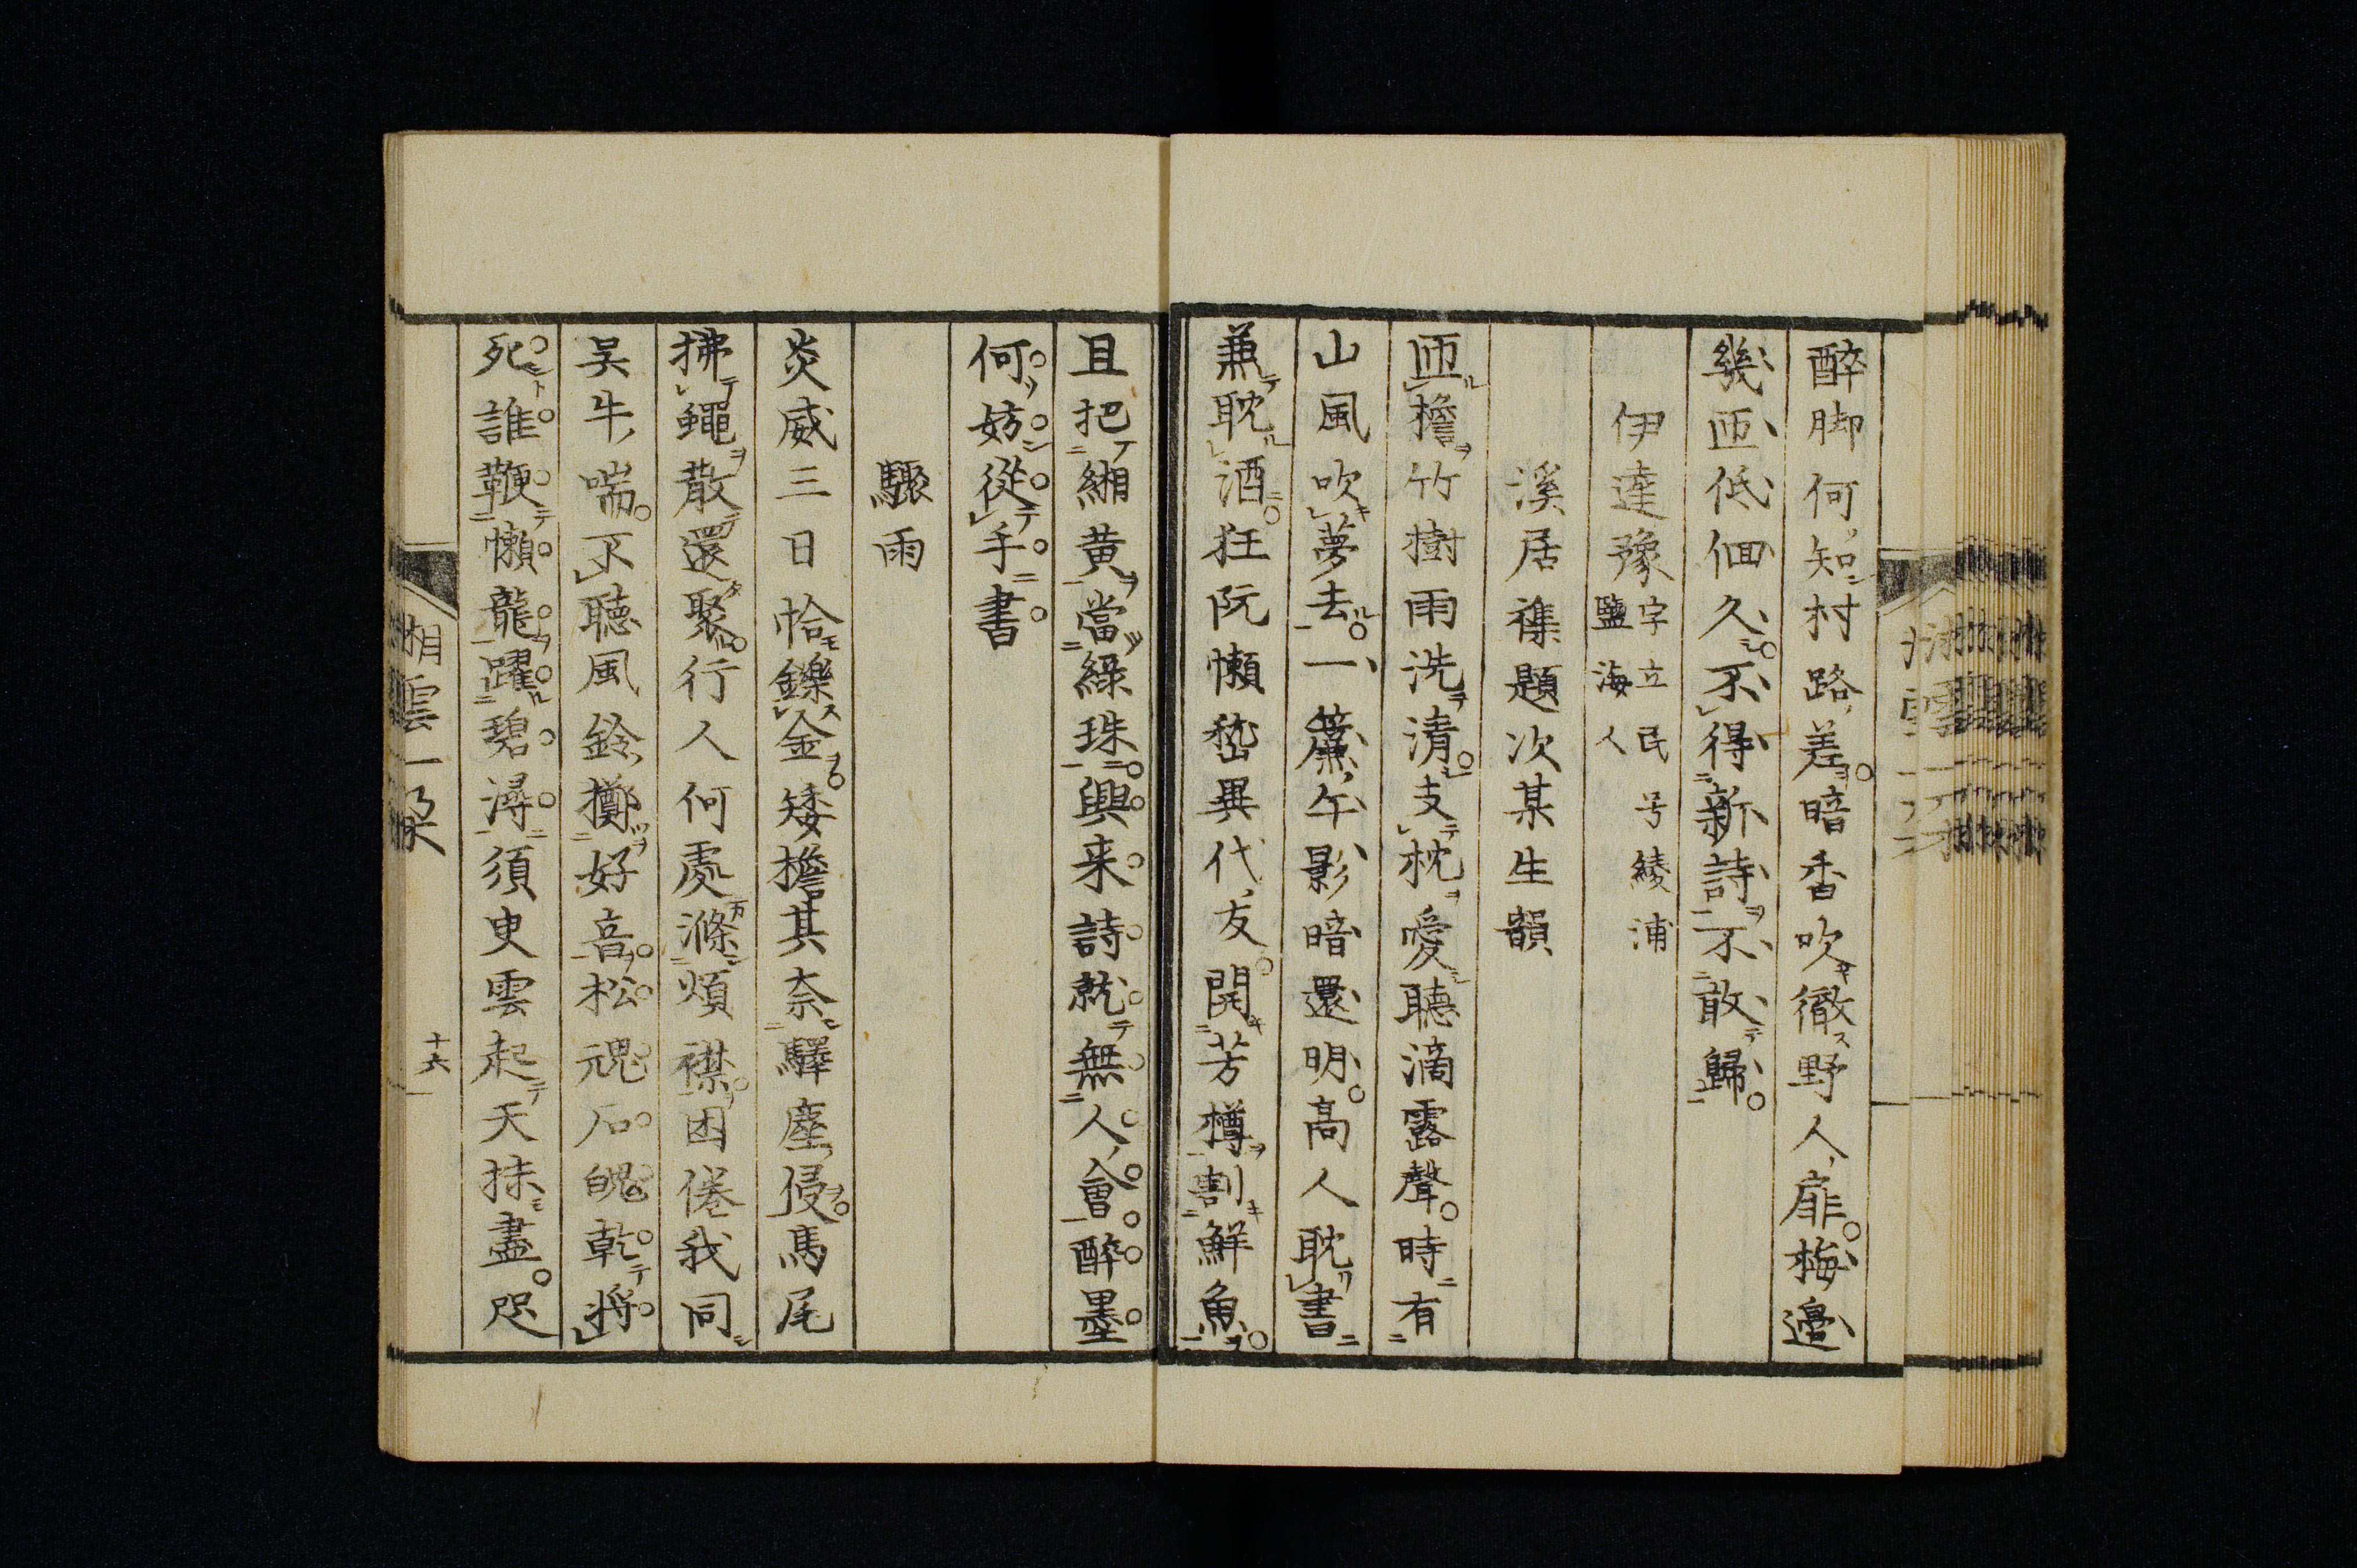 醉脚何知村路差暗香吹徹野人扉梅邊
幾匝低佪久不得新詩不敢歸
伊達豫
字立民号綾浦
鹽海人
溪居襍題次某生韻
匝檐竹樹雨洗清支枕愛聽滴露聲時有
山風吹夢去一簾午影暗還明高人耽書
兼耽酒狂阮懶嵇異代友開芳樽割鮮魚
且把緗黄當綠珠興来詩就無人會醉墨
何妨從手書
驟雨
炎威三日恰鑠金矮檐其奈驛塵侵馬尾
拂蠅散還聚行人何處滌煩襟困倦我同
吴牛喘不聽風鈴擲好音松魂石魄乾將
死誰鞭懶龍躍碧潯須臾雲起天抹盡咫
湘雲一朶
十六